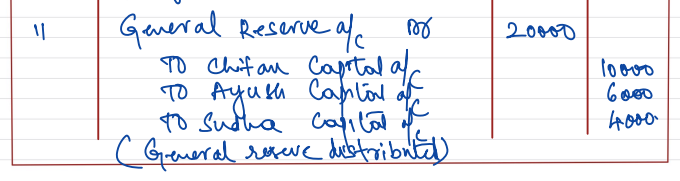 " General Reserve a/c Dr 20000
To Chitan Capital a/c 10000
To Ayush Capital a/c 6000
To Sudha Capital a/c 4000
(General reserve distributed)